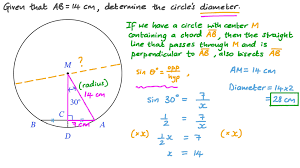 Given that AB = 14 cm, determine the circle's diameter.
If we have a circle with center M
containing a chord AB, then the straight
line that passes through M and is
perpendicular to AB, also bisects AB
?
M
(radius)
14 cm
30°
C
7 cm
B
D
A
sin θ° = opp/hyp
sin 30° = 7/x
1/2 = 7/x
(×x) 1/2 x = 7 (×x)
x = 14
AM = 14 cm
Diameter = 14×2
= 28 cm